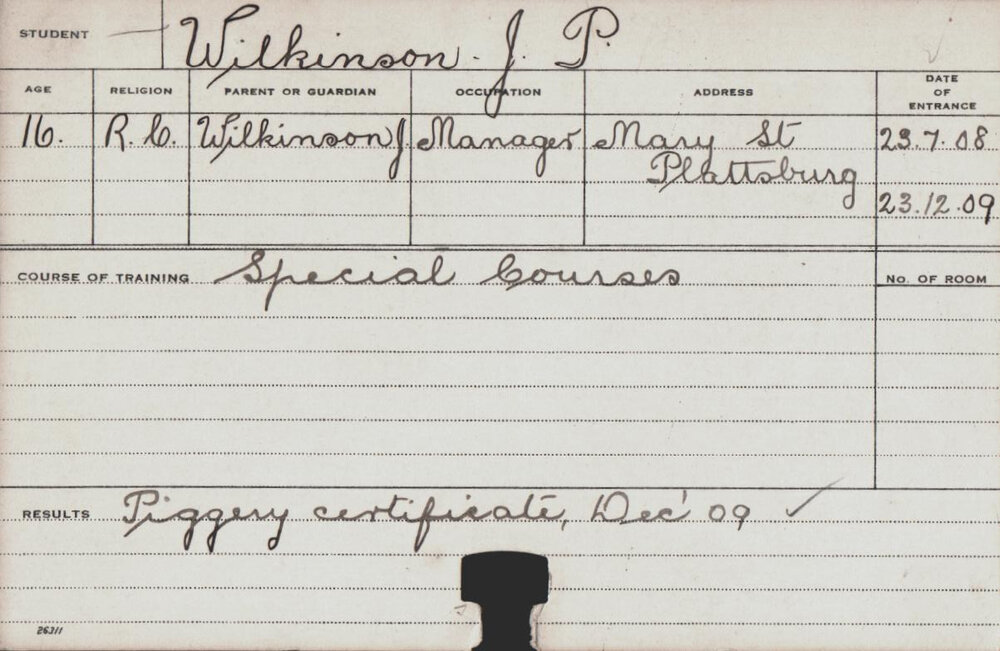 STUDENT Wilkinson. J. P.
AGE RELIGION PARENT OR GUARDIAN OCCUPATION ADDRESS DATE OF ENTRANCE
16. R.C. Wilkinson J. Manager Mary St 23.7.08
Plattsburg
23.12.09
COURSE OF TRAINING Special Courses No. OF ROOM
RESULTS Piggery certificate, Dec' 09 ✓
26311